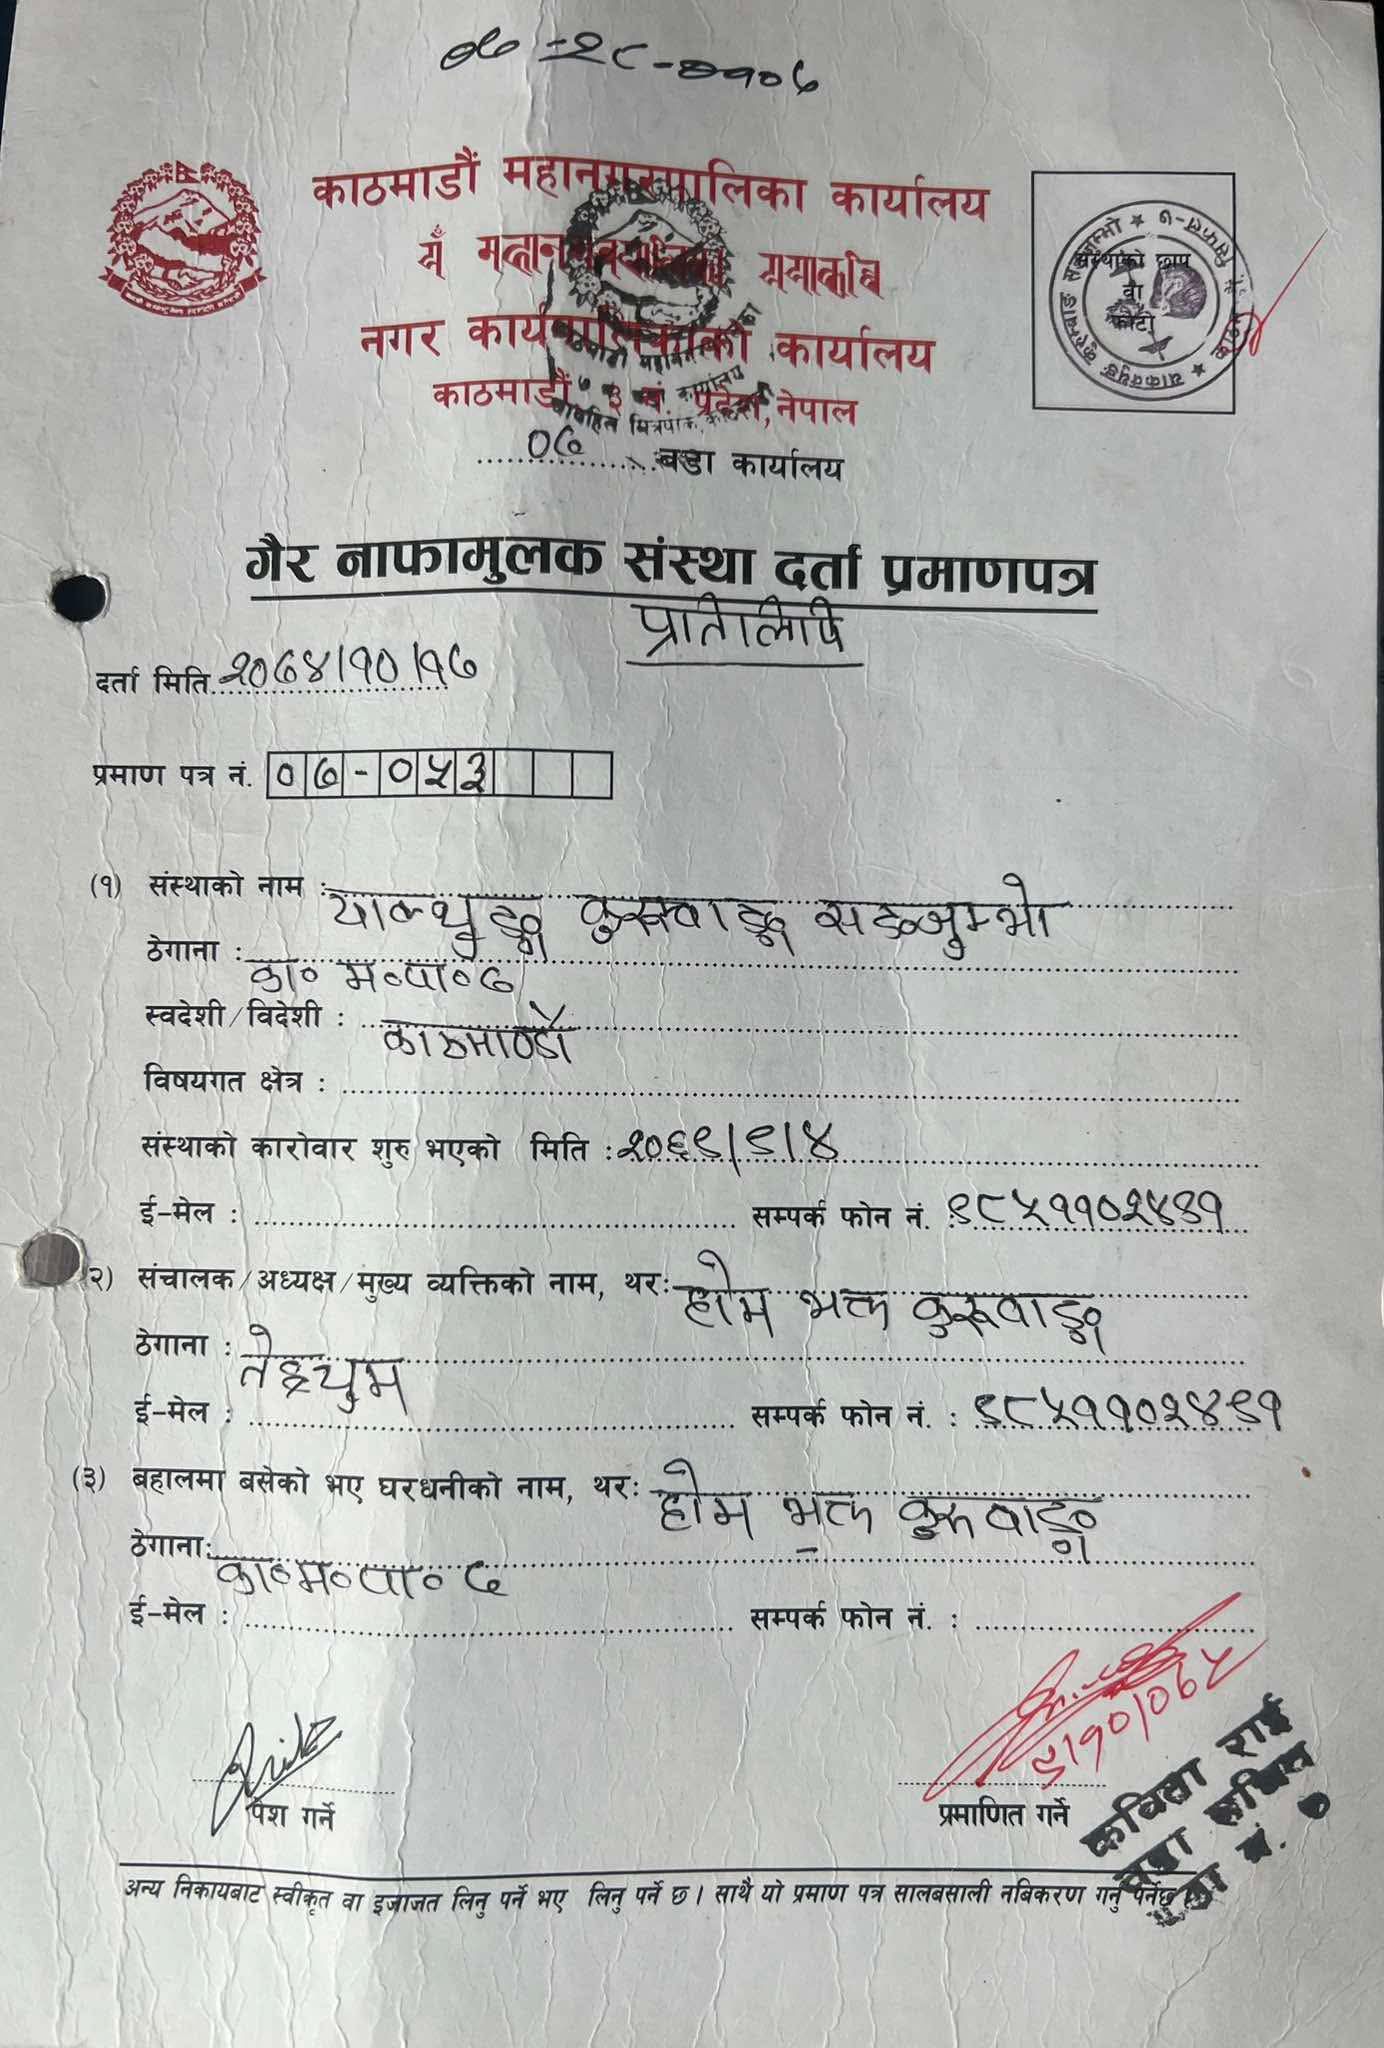 काठमाडौं महानगरपालिका कार्यालय
नगर कार्यपालिकाको कार्यालय
काठमाडौं ३ नं. प्रदेश, नेपाल
०७ वडा कार्यालय
संस्थाको छाप
वा
फोटो
गैर नाफामुलक संस्था दर्ता प्रमाणपत्र
प्रतिलिपि
दर्ता मिति २०७४।१०।१७
प्रमाण पत्र नं. ०७-०५३
(१) संस्थाको नाम : याक्थुङ्ग कुरुवाङ्ग सङजुम्भो
ठेगाना : का० म०पा० ७
स्वदेशी/विदेशी : काठमाण्डौ
विषयगत क्षेत्र :
संस्थाको कारोवार शुरु भएको मिति : २०६९।९।४
ई-मेल : सम्पर्क फोन नं. ९८५११०२४९१
२) संचालक/अध्यक्ष/मुख्य व्यक्तिको नाम, थर: होम भक्त कुरुवाङ्ग
ठेगाना : तेह्रथुम
ई-मेल : सम्पर्क फोन नं. : ९८५११०२४९१
(३) बहालमा बसेको भए घरधनीको नाम, थर: होम भक्त कुरुवाङ्ग
ठेगाना: का०म०पा० ७
ई-मेल : सम्पर्क फोन नं. :
९।१०।०७५
पेश गर्ने
प्रमाणित गर्ने
कविता राई
वडा सचिव
वडा नं. ७
अन्य निकायबाट स्वीकृत वा इजाजत लिनु पर्ने भए लिनु पर्ने छ । साथै यो प्रमाण पत्र सालबसाली नबिकरण गर्नु पर्नेछ ।